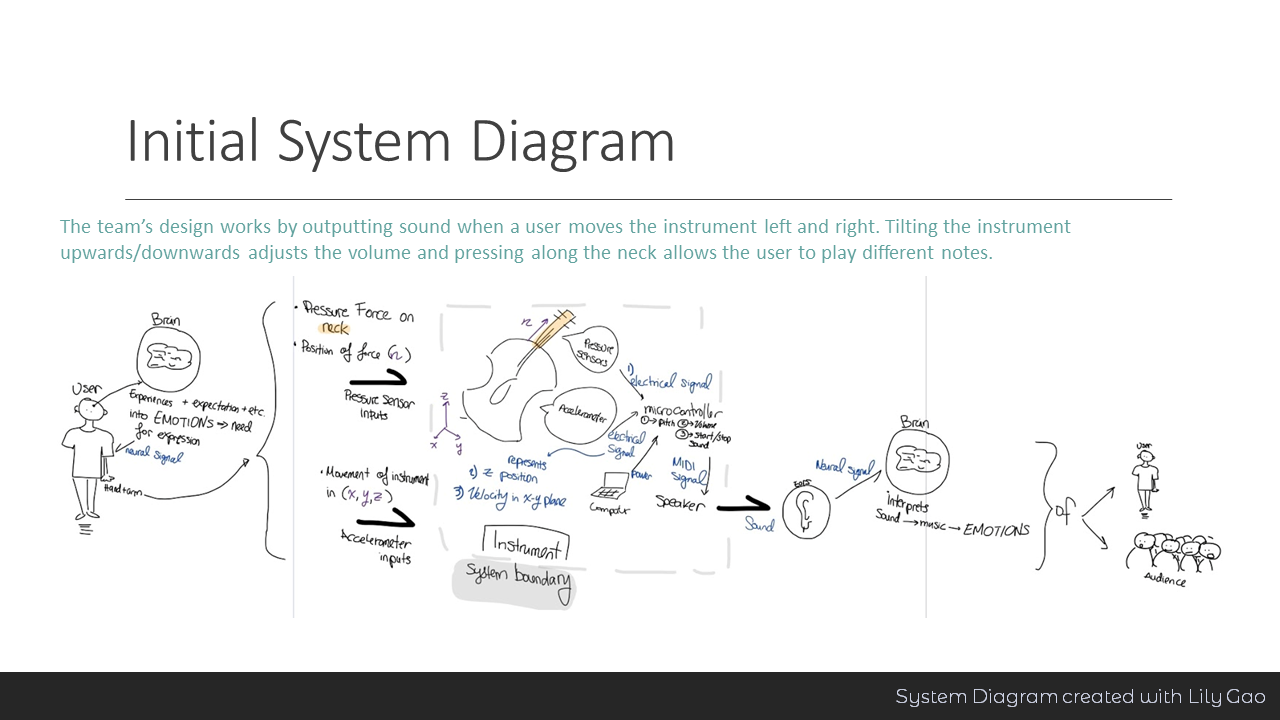 Initial System Diagram
The team's design works by outputting sound when a user moves the instrument left and right. Tilting the instrument
upwards/downwards adjusts the volume and pressing along the neck allows the user to play different notes.
Brain
User
Experiences + expectation + etc.
into EMOTIONS → need
for expression
neural signal
Hand/arm
• Pressure Force on
neck
• Position of force (r)
Pressure sensor
inputs
• Movement of instrument
in (x, y, z)
Accelerometer
inputs
r
Pressure
sensors
Accelerometer
z
x
y
1)
electrical signal
microcontroller
① → pitch ② → Volume
③ → Start/Stop
Sound
electrical
signal
represents
2) Z position
3) Velocity in x-y plane
Power
Computer
MIDI
Signal
Speaker
Instrument
System boundary
Sound
Ears
Neural signal
Brain
interprets
Sound → music → EMOTIONS
of
User
Audience
System Diagram created with Lily Gao